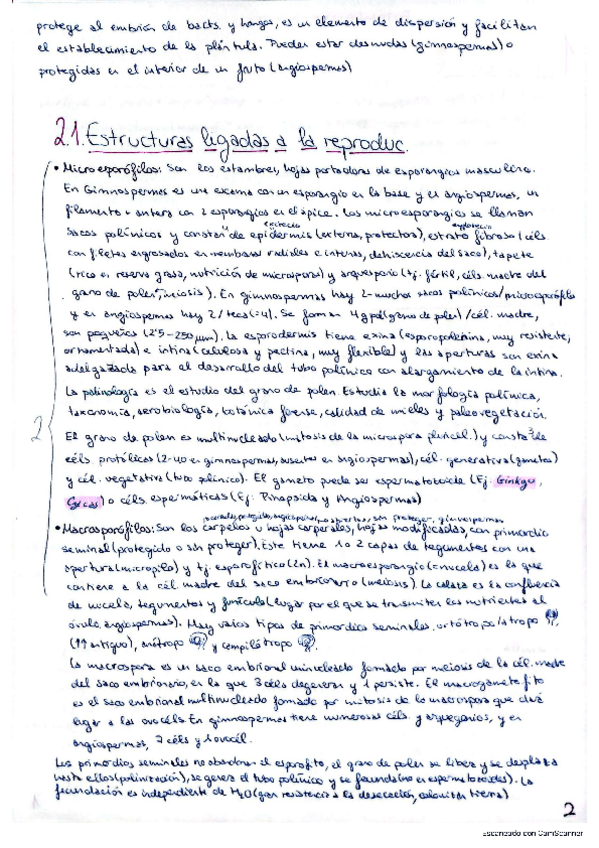 protege al embrión de bacts. y hongos, es un elemento de dispersión y facilitan
el establecimiento de la plántula. Pueden estar desnudas (gimnospermas) o
protegidas en el interior de un fruto (angiospermas)
2.1. Estructuras ligadas a la reproduc.
• Microsporófilos: Son los estambres, hojas portadoras de esporangios masculinos.
En Gimnospermas es una escama con un esporangio en la base y en angiospermas, un
filamento + antera con 2 esporangios en el ápice. Los microesporangios se llaman
sacos polínicos y constan de epidermis (externa, protectora), estrato fibroso (céls.
con filetes engrosados en membranas radiales e internas, dehiscencia del saco), tapete
(rico en reserva grasa, nutrición de microsporas) y arquesporio (tj. fértil, céls. madre del
grano de polen, meiosis). En gimnospermas hay 2-muchos sacos polínicos/microsporófilo
y en angiospermas hay 2/teca (=4). Se forman 4 gp (grano de polen)/cél. madre,
son pequeños (2'5-250 µm). La esporodermis tiene exina (esporopolenina, muy resistente,
ornamentada) e intina (celulosa y pectina, muy flexible) y las aperturas son exina
adelgazada para el desarrollo del tubo polínico con alargamiento de la intina.
La palinología es el estudio del grano de polen. Estudia la morfología polínica,
taxonomía, aerobiología, botánica forense, calidad de mieles y paleovegetación.
2
El grano de polen es multinucleado (mitosis de la microspora pluricel.) y consta de
céls. protálicas (2-40 en gimnospermas, ausentes en angiospermas), cél. generativa (gametos)
y cél. vegetativa (tubo polínico). El gameto puede ser espermatozoide (Ej. Ginkgo,
Cycas) o céls. espermáticas (Ej. Pinopsida y Angiospermas)
• Macrosporófilos: Son los carpelos u hojas carpelares, hojas modificadas, con primordio
seminal (protegido o sin proteger). Este tiene 1 o 2 capas de tegumentos con una
apertura (micropilo) y tj. esporofítico (2n). El macroesporangio (=nucela) es la que
contiene a la cél. madre del saco embrionario (meiosis). La calaza es la confluencia
de nucela, tegumentos y funículo (lugar por el que se transmiten los nutrientes al
óvulo, angiospermas). Hay varios tipos de primordios seminales, ortótropo/átropo
(↑↑ antiguo), anátropo y campilótropo
La macrospora es un saco embrional uninucleado formado por meiosis de la cél. madre
del saco embrionario, en la que 3 céls degeneran y 1 persiste. El macrogametofito
es el saco embrional multinucleado formado por mitosis de la macrospora que dará
lugar a las ovocéls. En gimnospermas tiene numerosas céls y arquegonios, y en
angiospermas, 7 céls y 1 ovocél.
Los primordios seminales no abandonan el esporofito, el grano de polen se libera y se desplaza
hasta ellos (polinización), se genera el tubo polínico y se fecunda (no en espermatozoides). La
fecundación es independiente de H₂O (gran resistencia a la desecación, colonizan tierra)
2
Escaneado con CamScanner